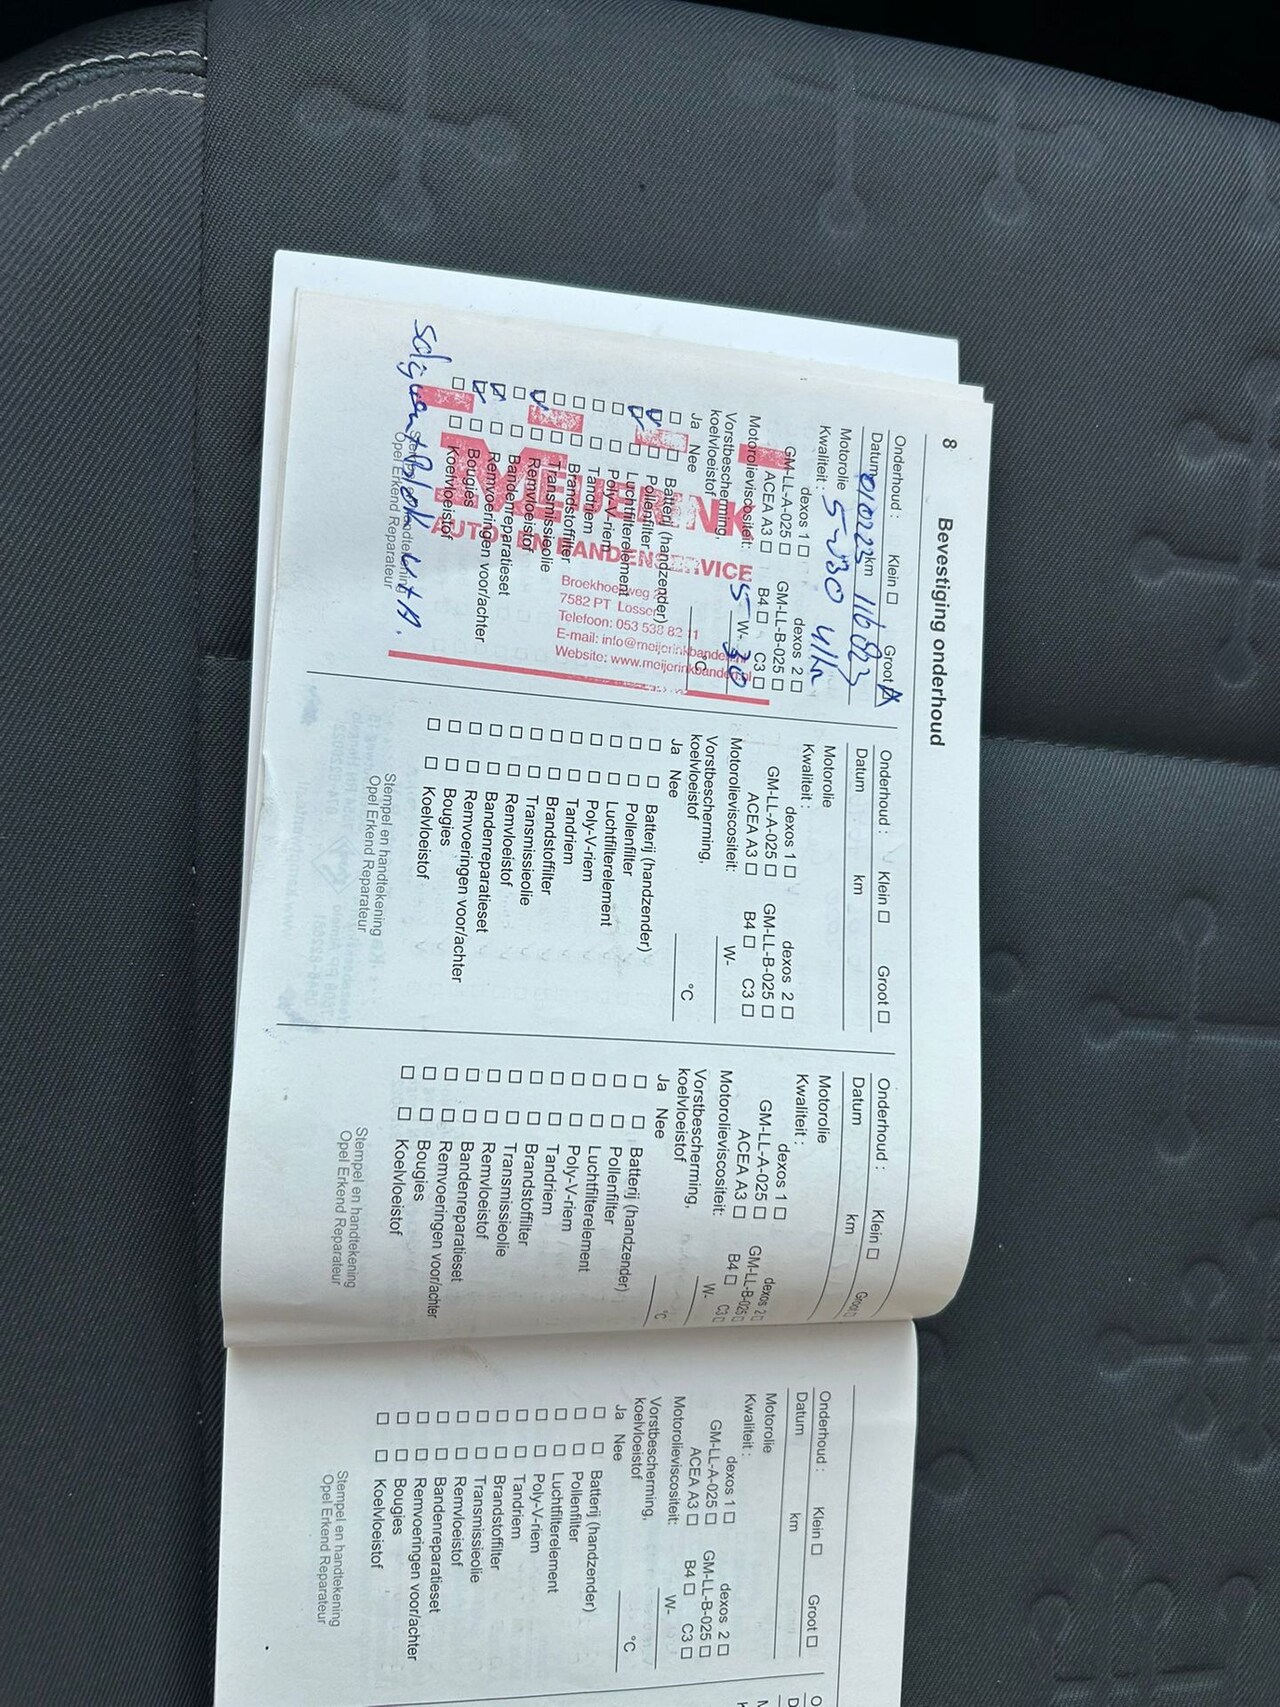 8 Bevestiging onderhoud
Onderhoud : Klein □ Groot
Datum 010223 km 116823
Motorolie
Kwaliteit : 5-W30 4 ltr
dexos 1 □ dexos 2 □
GM-LL-A-025 □ GM-LL-B-025 □
ACEA A3 □ B4 □ C3 □
Motorolieviscositeit: 5 W- 30
Vorstbescherming,
koelvloeistof °C
Ja Nee
Batterij (handzender)
Pollenfilter
Luchtfilterelement
Poly-V-riem
Tandriem
Brandstoffilter
Transmissieolie
Remvloeistof
Bandenreparatieset
Remvoeringen voor/achter
Bougies
Koelvloeistof
Opel Erkend Reparateur
MEIJERINK
AUTO- EN BANDENSERVICE
7582 PT Losser
Telefoon: 053 538 82 11
E-mail: info@meijerinkbanden.nl
Website: www.meijerinkbanden.nl
Onderhoud : Klein □ Groot □
Datum km
Motorolie
Kwaliteit :
dexos 1 □ dexos 2 □
GM-LL-A-025 □ GM-LL-B-025 □
ACEA A3 □ B4 □ C3 □
Motorolieviscositeit: W-
Vorstbescherming,
koelvloeistof °C
Ja Nee
□ □ Batterij (handzender)
□ □ Pollenfilter
□ □ Luchtfilterelement
□ □ Poly-V-riem
□ □ Tandriem
□ □ Brandstoffilter
□ □ Transmissieolie
□ □ Remvloeistof
□ □ Bandenreparatieset
□ □ Remvoeringen voor/achter
□ □ Bougies
□ □ Koelvloeistof
Stempel en handtekening
Opel Erkend Reparateur
Onderhoud : Klein □ Groot □
Datum km
Motorolie
Kwaliteit :
dexos 1 □ dexos 2 □
GM-LL-A-025 □ GM-LL-B-025 □
ACEA A3 □ B4 □ C3 □
Motorolieviscositeit: W-
Vorstbescherming,
koelvloeistof °C
Ja Nee
□ □ Batterij (handzender)
□ □ Pollenfilter
□ □ Luchtfilterelement
□ □ Poly-V-riem
□ □ Tandriem
□ □ Brandstoffilter
□ □ Transmissieolie
□ □ Remvloeistof
□ □ Bandenreparatieset
□ □ Remvoeringen voor/achter
□ □ Bougies
□ □ Koelvloeistof
Stempel en handtekening
Opel Erkend Reparateur
Onderhoud : Klein □ Groot □
Datum km
Motorolie
Kwaliteit :
dexos 1 □ dexos 2 □
GM-LL-A-025 □ GM-LL-B-025 □
ACEA A3 □ B4 □ C3 □
Motorolieviscositeit: W-
Vorstbescherming,
koelvloeistof °C
Ja Nee
□ □ Batterij (handzender)
□ □ Pollenfilter
□ □ Luchtfilterelement
□ □ Poly-V-riem
□ □ Tandriem
□ □ Brandstoffilter
□ □ Transmissieolie
□ □ Remvloeistof
□ □ Bandenreparatieset
□ □ Remvoeringen voor/achter
□ □ Bougies
□ □ Koelvloeistof
Stempel en handtekening
Opel Erkend Reparateur